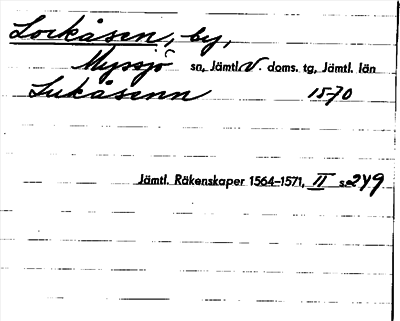 Lockåsen, by,
Myssjö sn, Jämtl. V. doms. tg, Jämtl. län
Lukåsenn 1570
Jämtl. Räkenskaper 1564-1571, II s. 249